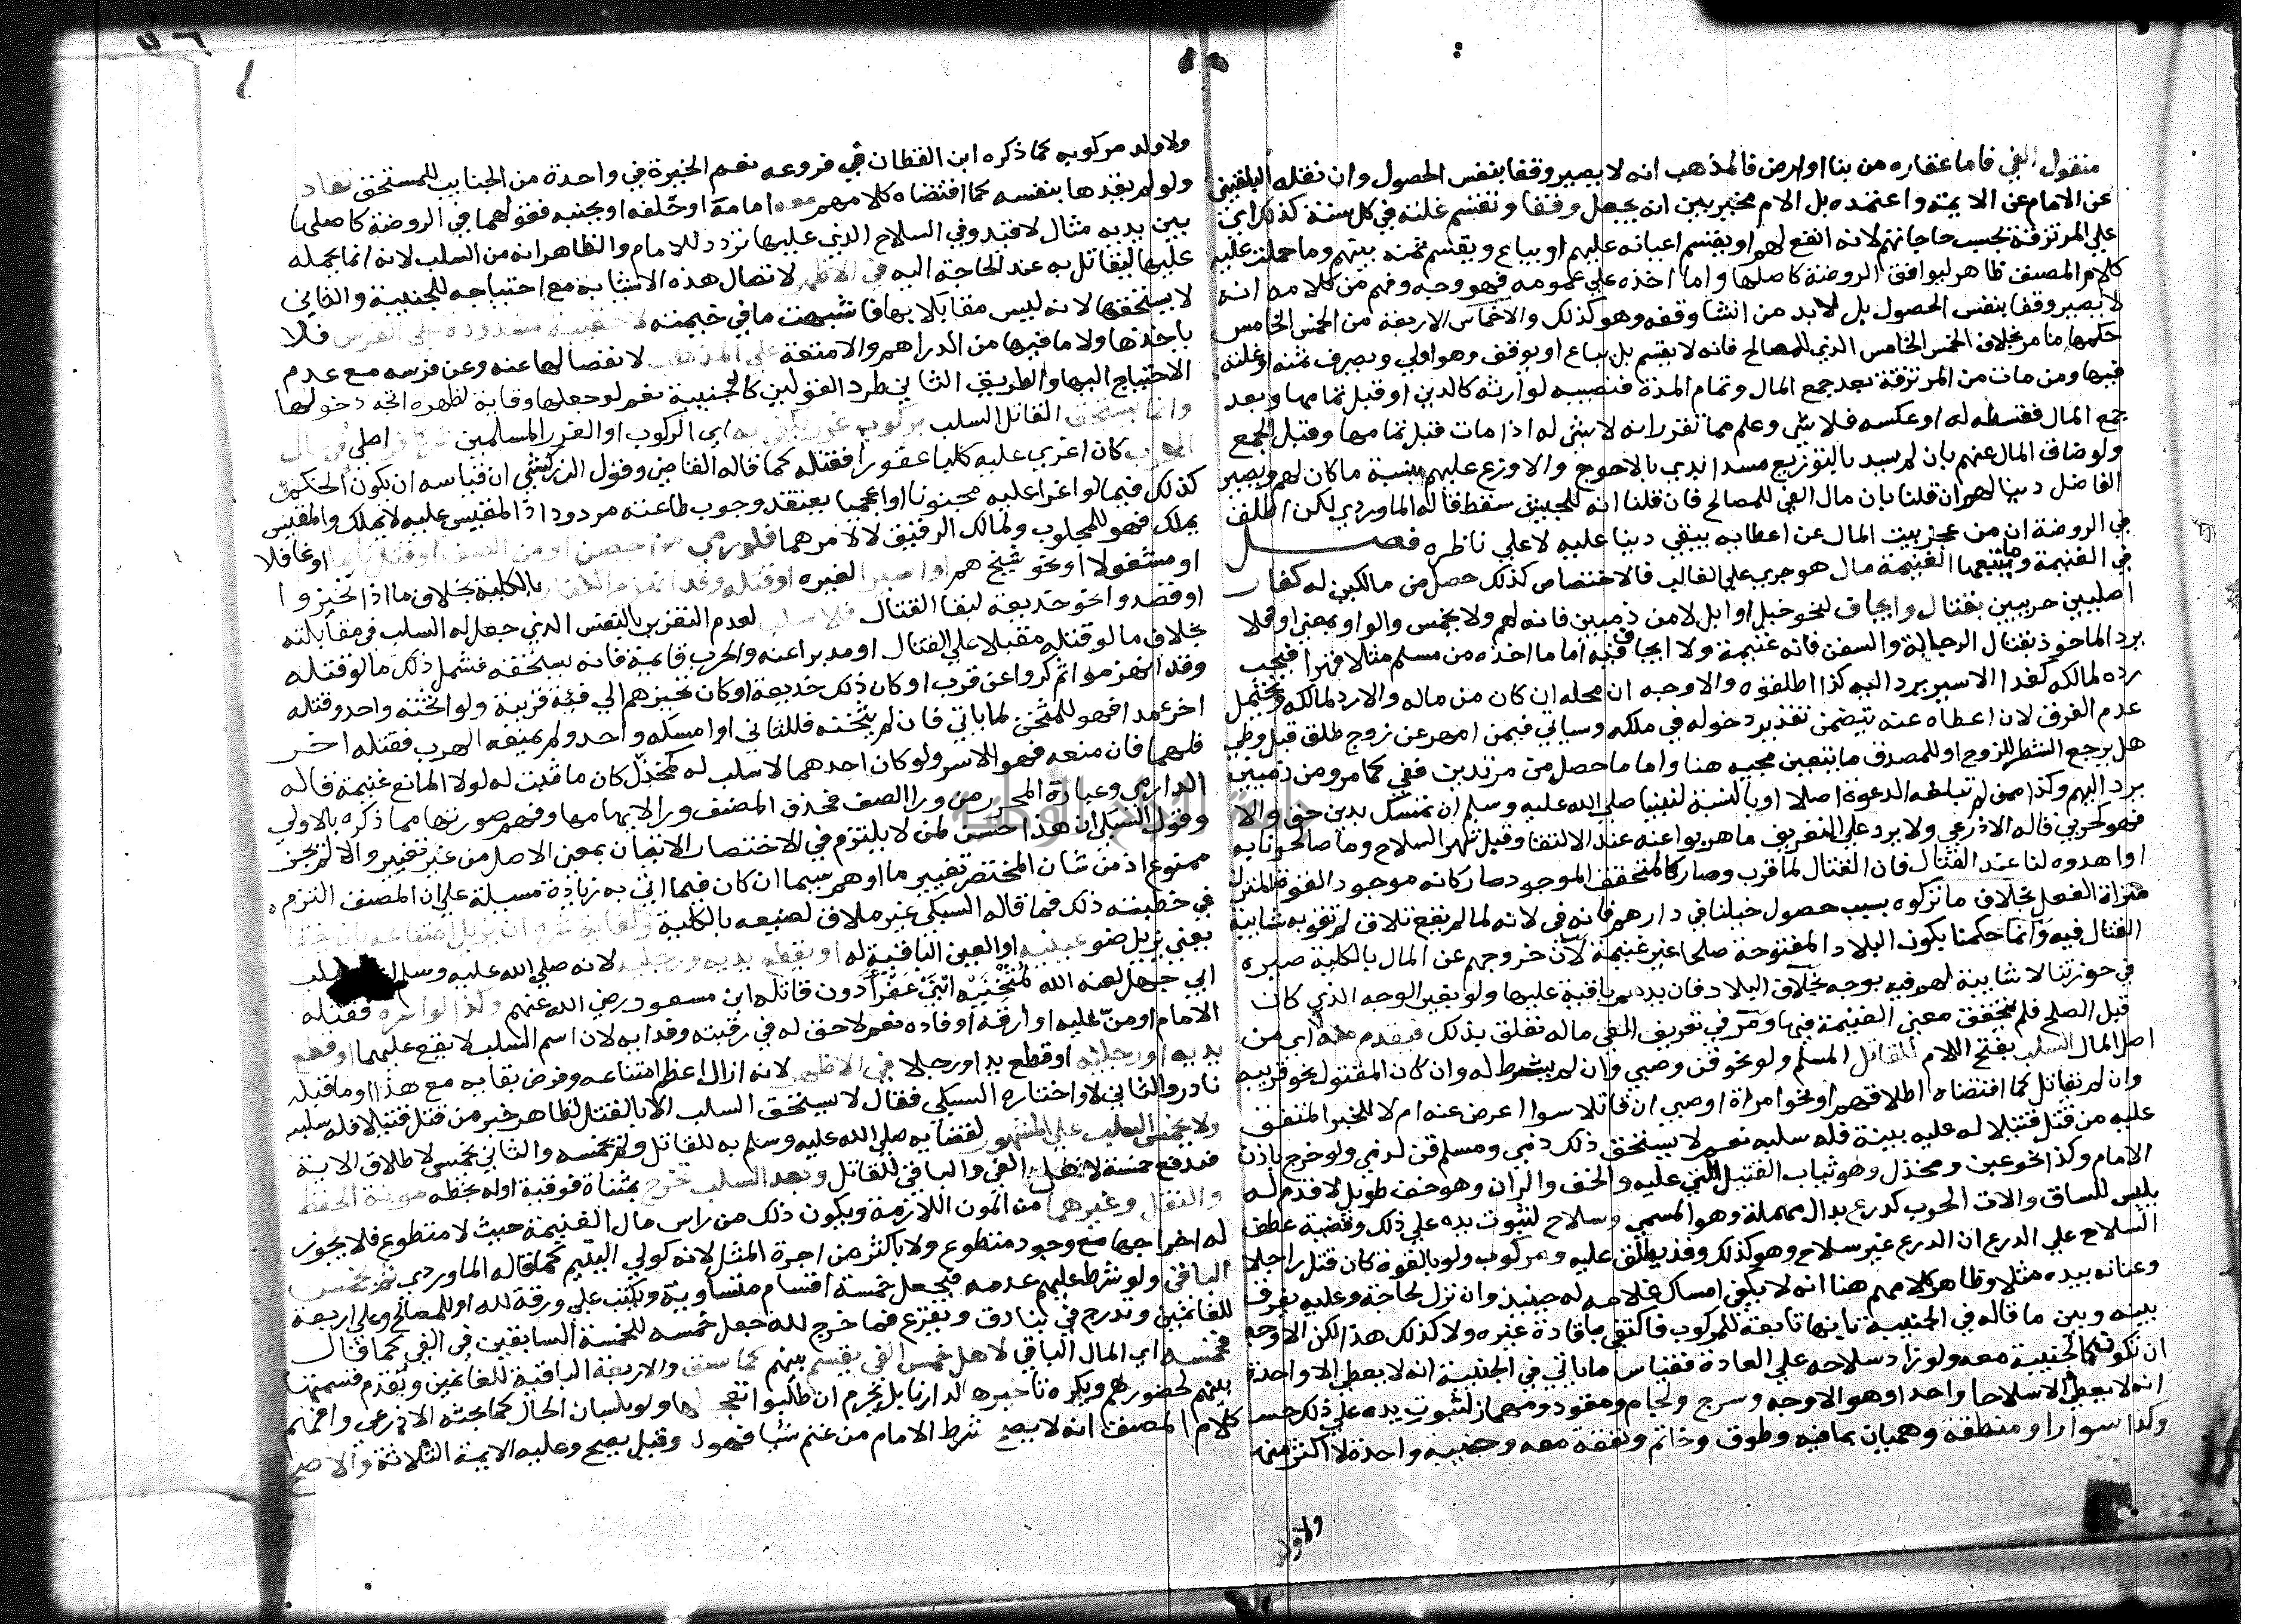 منقول الفي فاما عقاره من بنا او ارض فالمذهب انه لا يصير وقفا بنفس الحصول وان نقله البلقيني
عن الامام عن الايمة واعتمده بل الامام مخير بين ان يجعل وقفا وتقسم غلته في كل سنة كذلك اي
علي المرتزقة بحسب حاجاتهم لانه انفع لهم او يقسم اعيانه عليهم او يباع ويقسم ثمنه بينهم وما حملت عليه
كلام المصنف ظاهر ليوافق الروضة كاصلها واما اخذه علي عمومه فهو وجه وفهم من كلامه انه
لا يصير وقفا بنفس الحصول بل لا بد من انشا وقفه وهو كذلك والاخماس الاربعة من الخمس الخامس
حكمها ما مر بخلاف الخمس الخامس الذي للمصالح فانه لا يقسم بل يباع او يوقف وهو اولي ويصرف ثمنه او غلته
فيها ومن مات من المرتزقة بعد جمع المال وتمام المدة فنصيبه لوارثه كالدين او قبل تمامها وبعد
جمع المال فقسطه له او عكسه فلا شي وعلم مما تقرر انه لا شي له اذا مات قبل تمامها وقبل الجمع
ولو ضاق المال عنهم بان لم يسد بالتوزيع مسدا بدي بالاحوج والا وزع عليهم بنسبة ما كان لهم ويصير
الفاضل دينا لهم ان قلنا بان مال الفي للمصالح فان قلنا انه للجيش سقط قاله الماوردي لكن اطلق
في الروضة ان من عجز بيت المال عن اعطايه يبقي دينا عليه لا علي ناظره فصل
في الغنيمة وما يتبعها الغنيمة مال هو جري علي الغالب فالاختصاص كذلك حصل من مالكين له كفار
اصليين حربيين بقتال وايجاف لنحو خيل او ابل لا من ذميين فانه لهم ولا يخمس والواو بمعني او فلا
يرد الماخوذ بقتال الرجالة والسفن فانه غنيمة ولا ايجاف فيه اما ما اخذه من مسلم مثلا قهرا فيجب
رده لمالكه كفدا الاسير يرد اليه كذا اطلقوه والاوجه ان محله ان كان من ماله والا رد لمالكه ويحتمل
عدم الفرق لان اعطاه عنه يتضمن تقدير دخوله في ملكه وسياتي فيمن امهر عن زوج طلق قبل وطي
هل يرجع الشطر للزوج او للمصدق ما يتعين مجيه هنا واما ما حصل من مرتدين ففي كما مر ومن ذميين
يرد اليهم وكذا ممن لم تبلغه الدعوة اصلا او بالنسبة لنبينا صلي الله عليه وسلم ان تمسك بدين حق والا
فهو كحربي قاله الاذرعي ولا يرد علي التعريف ما هربوا عنه عند الالتقا وقبل شهر السلاح وما صالحونا به
او اهدوه لنا عند القتال فان القتال لما قرب وصار كالمتحقق الموجود صار كانه موجود القوة المنزل
منزلة الفعل بخلاف ما تركوه بسبب حصول خيلنا في دارهم فانه في لانه لما لم يقع تلاق لم تقو به شايبة
القتال فيه وانما حكمنا بكون البلاد المفتوحة صلحا غير غنيمة لان خروجهم عن المال بالكلية صيره
في حوزتنا لا شايبة لهم فيه بوجه بخلاف البلاد فان يدهم باقية عليها ولو بغير الوجه الذي كان
قبل الصلح فلم يتحقق معني الغنيمة فيها ومر في تعريف الفي ماله تعلق بذلك فيقدم منه اي من
اصل المال السلب بفتح اللام للقاتل المسلم ولو نحو قن وصبي وان لم يشرط له وان كان المقتول نحو قريبه
وان لم يقاتل كما اقتضاه اطلاقهم او نحو امراة او صبي ان قاتلا سوا اعرض عنه ام لا للخبر المتفق
عليه من قتل قتيلا له عليه بينة فله سلبه نعم لا يستحق ذلك ذمي ومسلم قن لذمي ولو خرج باذن
الامام وكذا نحو عين ومخذل وهو ثياب القتيل التي عليه والخف والران وهو خف طويل لا قدم له
يلبس للساق والات الحرب كدرع بدال مهملة وهو المسمي وسلاح لثبوت يده علي ذلك وقضية عطف
السلاح علي الدرع ان الدرع غير سلاح وهو كذلك وقد يطلق عليه ومركوب ولو بالقوة كان قتل راجلا
وعنانه بيده مثلا وظاهر كلامهم هنا انه لا يكفي امساك غلامه له حينيذ وان نزل لحاجة وعليه يفرق
بينه وبين ما قاله في الجنيبة بانها تابعة للمركوب فاكتفي بقادة غيره ولا كذلك هذا لكن الاوجه
ان تكون كالجنيبة معه ولو زاد سلاحه علي العادة فقياس ما ياتي في الجنيبة انه لا يعطي الا واحدة
انه لا يعطي الا سلاحا واحدا وهو الاوجه وسرج ولجام ومقود ومهماز لثبوت يده علي ذلك حسا
وكذا سوار او منطقة وهميان بما فيه وطوق وخاتم ونفقة معه وجنيبة واحدة لا اكثر منه
ولا ولد
ولا ولد مركوبه كما ذكره ابن القطان في فروعه نعم الخيرة في واحدة من الجنايب للمستحق تقاد
ولو لم يقدها بنفسه كما اقتضاه كلامهم معه امامه او خلفه او بجنبه فقولهما في الروضة كاصلها
بين يديه مثال لا قيد وفي السلاح الذي عليها تردد للامام والظاهر انه من السلب لانه انما يحمله
عليها ليقاتل به عند الحاجة اليه في الاظهر لاتصال هذه الاشيا به مع احتياجه للجنيبة والثاني
لا يستحقها لانه ليس مقاتلا بها فاشبهت ما في خيمته لا حقيبة مشدودة علي الفرس فلا
ياخذها ولا ما فيها من الدراهم والامتعة علي المذهب لانفصالها عنه وعن فرسه مع عدم
الاحتياج اليها والطريق الثاني طرد القولين كالجنيبة نعم لو جعلها وقاية لظهره اتجه دخولها
وانما يستحق القاتل السلب بركوب غرر يكفي به اي الركوب او الغرر المسلمين اصلي في حال
الحرب كان اغري عليه كلبا عقورا فقتله كما قاله القاضي وقول الزركشي ان قياسه ان يكون الحكم
كذلك فيما لو اغرا عليه مجنونا او اعجميا يعتقد وجوب طاعته مردود اذ المقيس عليه لا يملك والمقيس
يملك فهو للمجلوب ولمالك الرقيق لا لامرهما فلو رمي من حصن او من الصف او قتل نايما او غافلا
او مشغولا او نحو شيخ هم او اسيرا لغيره او قتله وقد انهزم الكفار بالكلية بخلاف ما اذا تحيزوا
او قصدوا نحو خديعة لبقا القتال فلا سلب لعدم التغرير بالنفس الذي جعل له السلب في مقابلته
بخلاف ما لو قتله مقبلا علي القتال او مدبرا عنه والحرب قايمة فانه يستحقه فشمل ذلك ما لو قتله
وقد انهزموا ثم كروا عن قرب او كان ذلك خديعة او كان تحيزهم الي فية قريبة ولو اثخنه واحد وقتله
اخر عمدا فهو للمثخن لما ياتي فان لم يثخنه فللثاني او امسكه واحد ولم يمنعه الهرب فقتله اخر
فلهما فان منعه فهو الاسر ولو كان احدهما لا سلب له كمخذل كان ما ثبت له لولا المانع غنيمة قاله
الدارمي وعبارة المحرر من ورا الصف فحذف المصنف ورا لايهامها وفهم صورتها مما ذكره بالاولي
وقول السبكي ان هذا حسن لمن لا يلتزم في الاختصار الاتيان بمعني الاصل من غير تغيير والا لم يجز
ممنوع اذ من شان المختصر تغيير ما اوهم سيما ان كان فيما اتي به زيادة مسيلة علي ان المصنف التزم
في خطبته ذلك فما قاله السبكي غير ملاق لصنيعه بالكلية وكفاية شره ان يزيل امتناعه بان يفقا
يعني يزيل ضو عينيه او العين الباقية له او يقطع يديه ورجليه لانه صلي الله عليه وسلم سلب
ابي جهل لعنه الله لمثخنيه ابني عفرا دون قاتله ابن مسعود رضي الله عنهم وكذا لو اسره فقتله
الامام او من عليه او ارقه او فاده نعم لا حق له في رقبته وفدايه لان اسم السلب لا يقع عليهما او قطع
يديه او رجليه او قطع يدا ورجلا في الاظهر لانه ازال اعظم امتناعه وفرض بقايه مع هذا وما قبله
نادر والثاني لا واختاره السبكي فقال لا يستحق السلب الا بالقتل لظاهر خبر من قتل قتيلا فله سلبه
ولا يخمس السلب علي المشهور لقضايه صلي الله عليه وسلم به للقاتل ولم يخمسه والثاني يخمس لاطلاق الاية
فيدفع خمسه لاهل الفي والباقي للقاتل وبعد السلب تخرج بمثناة فوقية اوله بخطه مونة الحفظ
والنقل وغيرهما من المون اللازمة ويكون ذلك من راس مال الغنيمة حيث لا متطوع فلا يجوز
له اخراجها مع وجود متطوع ولا باكثر من اجرة المثل لانه كولي اليتيم كما قاله الماوردي ثم يخمس
الباقي ولو شرط عليهم عدمه فيجعل خمسة اقسام متساوية ويكتب علي ورقة لله او للمصالح وعلي اربعة
للغانمين وتدرج في بنادق ويقرع فما خرج لله جعل خمسه للخمسة السابقين في الفي كما قال
فخمسه اي المال الباقي لاهل خمس الفي يقسم بينهم كما سبق والاربعة الباقية للغانمين وتقدم قسمتها
بينهم لحضورهم ويكره تاخيرها لدارنا بل يحرم ان طلبوا تعجيلها ولو بلسان الحال كما بحثه الاذرعي وافهم
كلام المصنف انه لا يصح شرط الامام من غنم شيا فهو له وقيل يصح وعليه الايمة الثلاثة والاصح